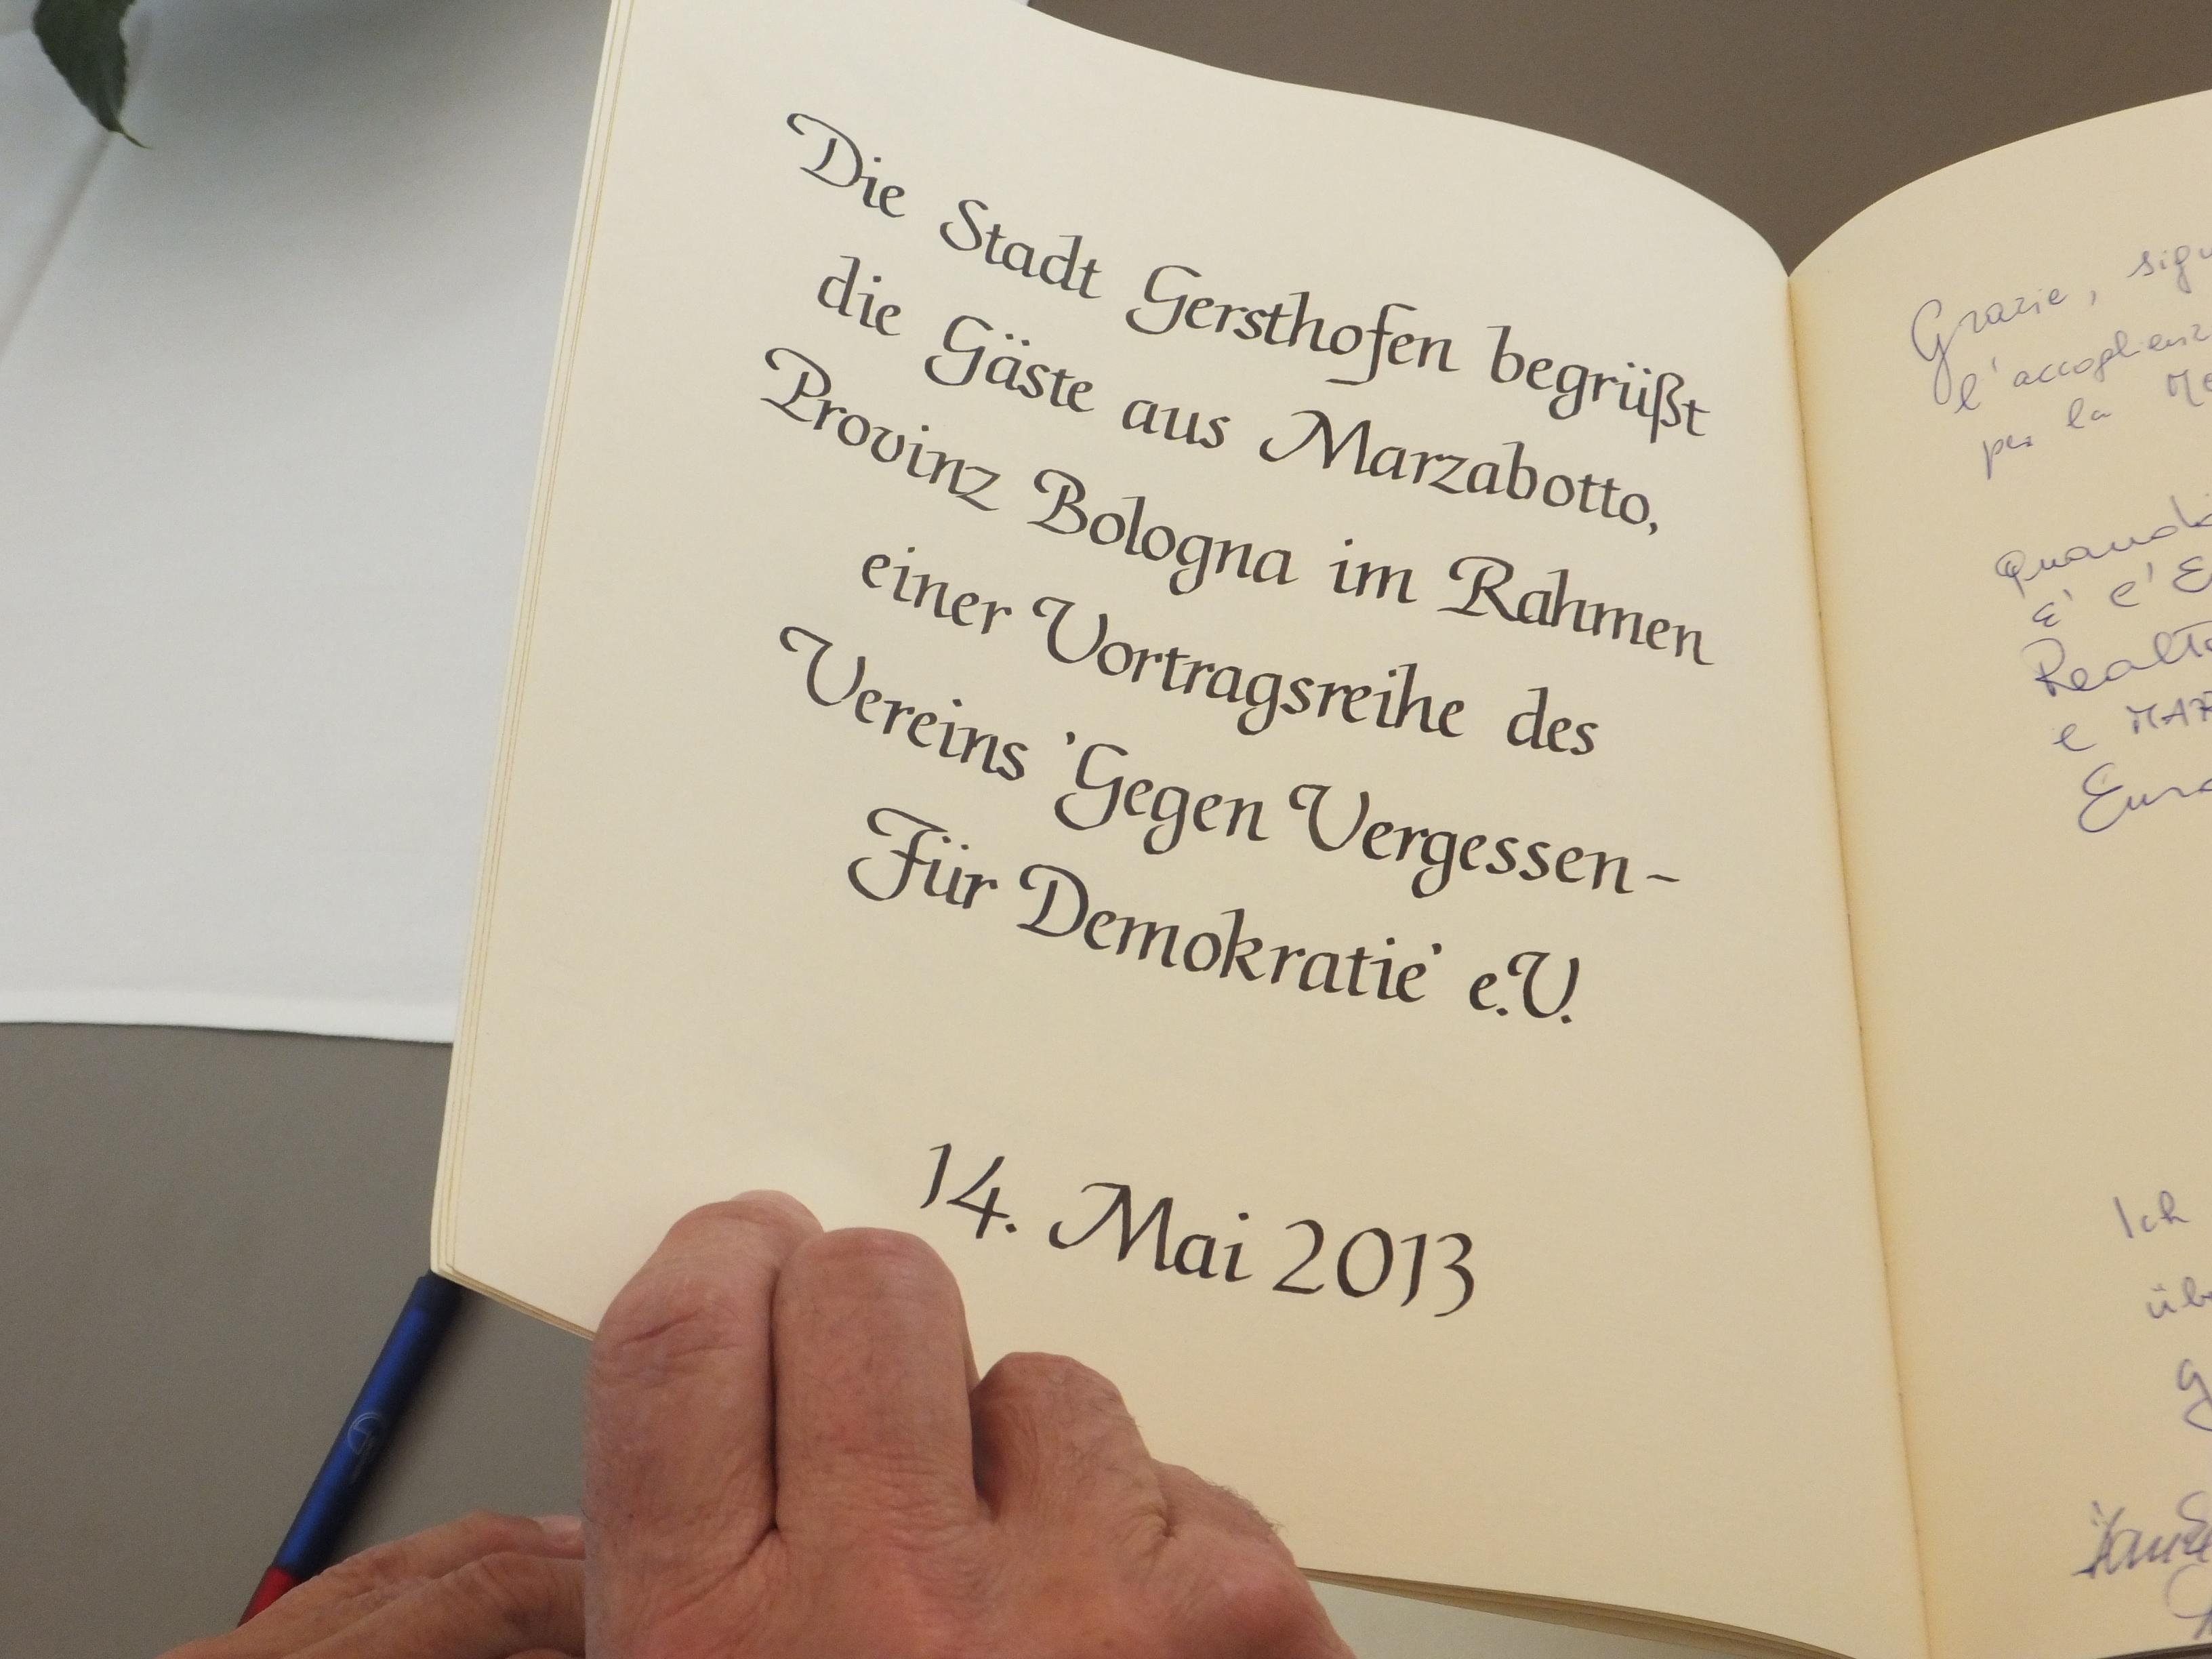 Die Stadt Gersthofen begrüßt
die Gäste aus Marzabotto,
Provinz Bologna im Rahmen
einer Vortragsreihe des
Vereins 'Gegen Vergessen-
Für Demokratie' e.V.
14. Mai 2013
Grazie,
l'accoglienz
per la
e
Ich